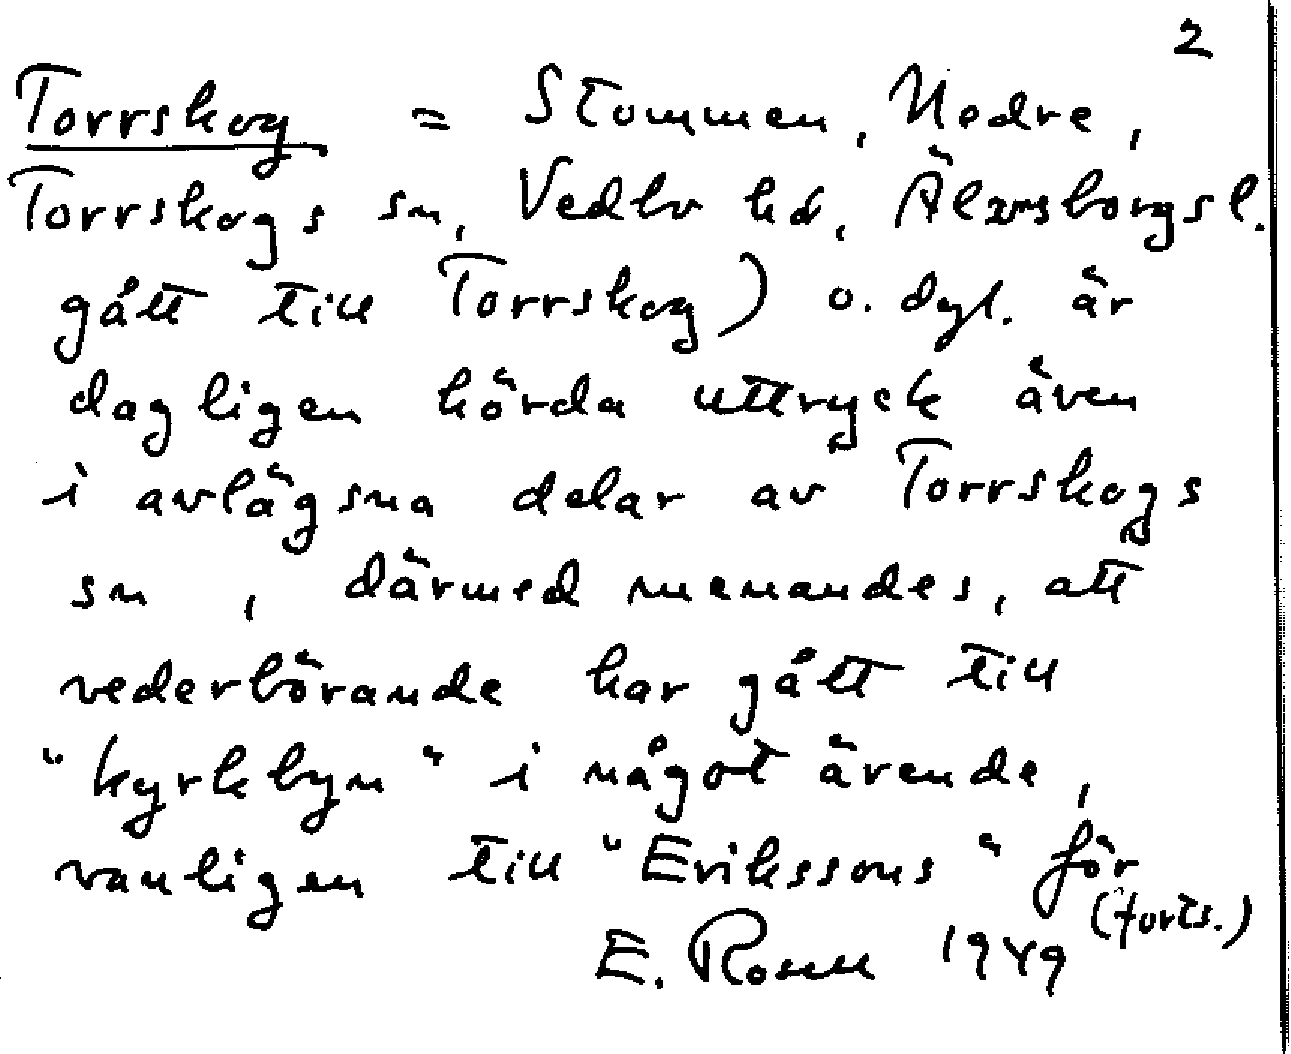 2
Torrskog = Stommen, Nedre,
Torrskogs sn, Vedbo hd, Älvsborgs l.
gått till Torrskog) o. dyl. är
dagligen hörda uttryck även
i avlägsna delar av Torrskogs
sn, därmed menandes, att
vederbörande har gått till
"kyrkbyn" i något ärende,
vanligen till "Erikssons" för
(forts.)
E. 1949